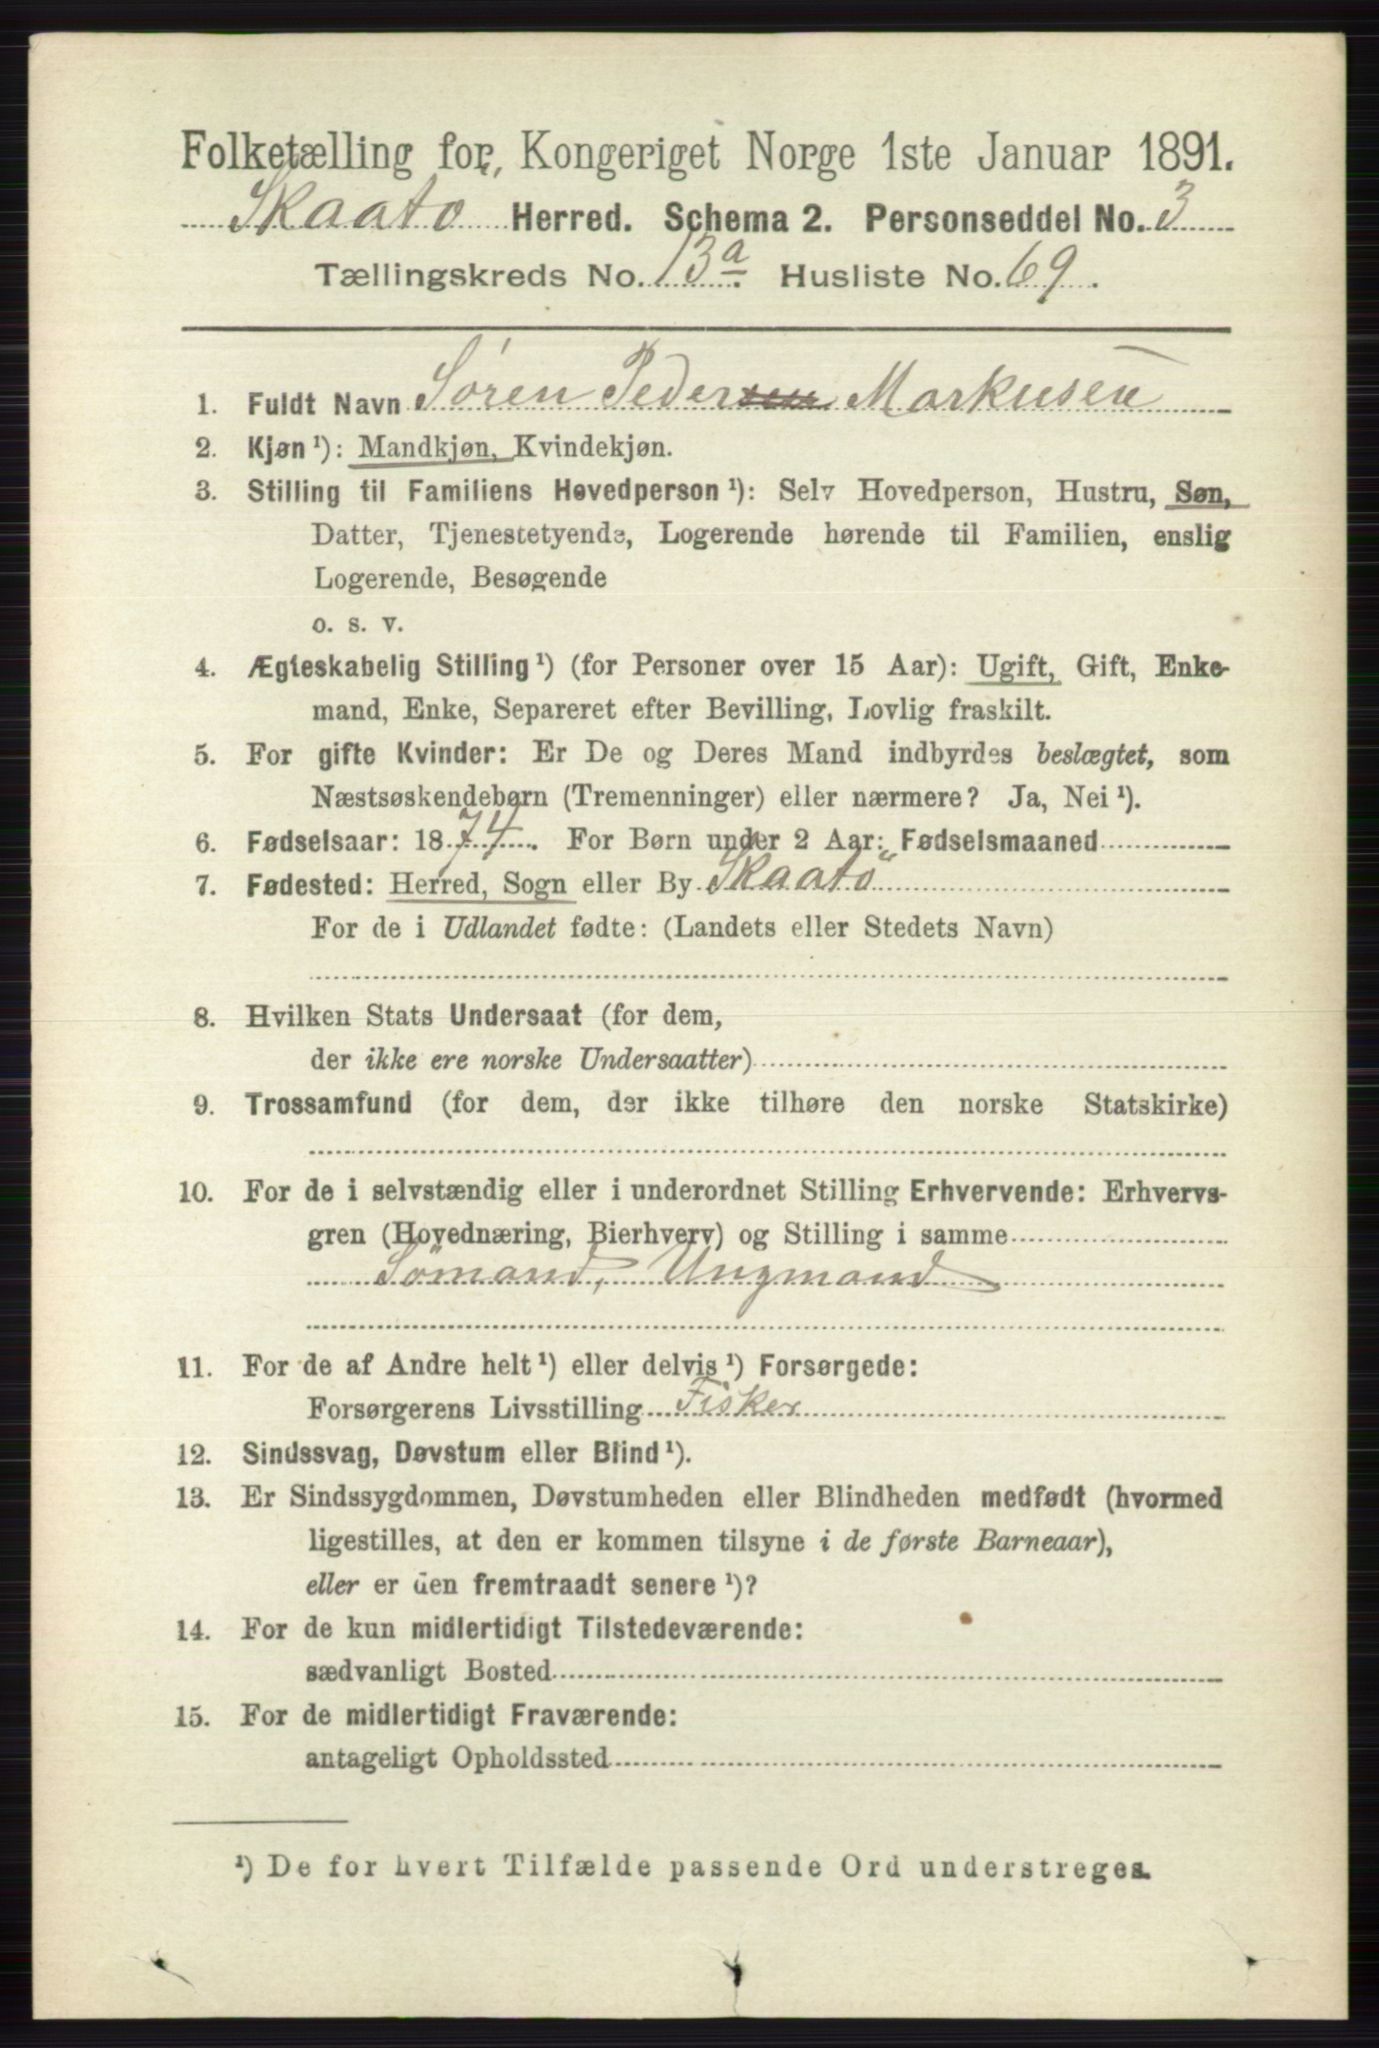 Folketælling for Kongeriget Norge 1ste Januar 1891.
Skaatö Herred. Schema 2. Personseddel No. 3
Tællingskreds No. 13a. Husliste No. 69.
1. Fuldt Navn Sören Pedersen Markusen
2. Kjøn¹): Mandkjøn, Kvindekjøn.
3. Stilling til Familiens Hovedperson¹): Selv Hovedperson, Hustru, Søn,
Datter, Tjenestetyende, Logerende hørende til Familien, enslig
Logerende, Besøgende
o. s. v.
4. Ægteskabelig Stilling¹) (for Personer over 15 Aar): Ugift, Gift, Enke-
mand, Enke, Separeret efter Bevilling, Lovlig fraskilt.
5. For gifte Kvinder: Er De og Deres Mand indbyrdes beslægtet, som
Næstsøskendebørn (Tremenninger) eller nærmere? Ja, Nei¹).
6. Fødselsaar: 1874. For Børn under 2 Aar: Fødselsmaaned
7. Fødested: Herred, Sogn eller By Skaatö
For de i Udlandet fødte: (Landets eller Stedets Navn)
8. Hvilken Stats Undersaat (for dem,
der ikke ere norske Undersaatter)
9. Trossamfund (for dem, der ikke tilhøre den norske Statskirke)
10. For de i selvstændig eller i underordnet Stilling Erhvervende: Erhvervs-
gren (Hovednæring, Bierhverv) og Stilling i samme
Sömand, Ungmand
11. For de af Andre helt¹) eller delvis¹) Forsørgede:
Forsørgerens Livsstilling Fisker
12. Sindssvag, Døvstum eller Blind¹).
13. Er Sindssygdommen, Døvstumheden eller Blindheden medfødt (hvormed
ligestilles, at den er kommen tilsyne i de første Barneaar),
eller er den fremtraadt senere¹)?
14. For de kun midlertidigt Tilstedeværende:
sædvanligt Bosted
15. For de midlertidigt Fraværende:
antageligt Opholdssted
¹) De for hvert Tilfælde passende Ord understreges.